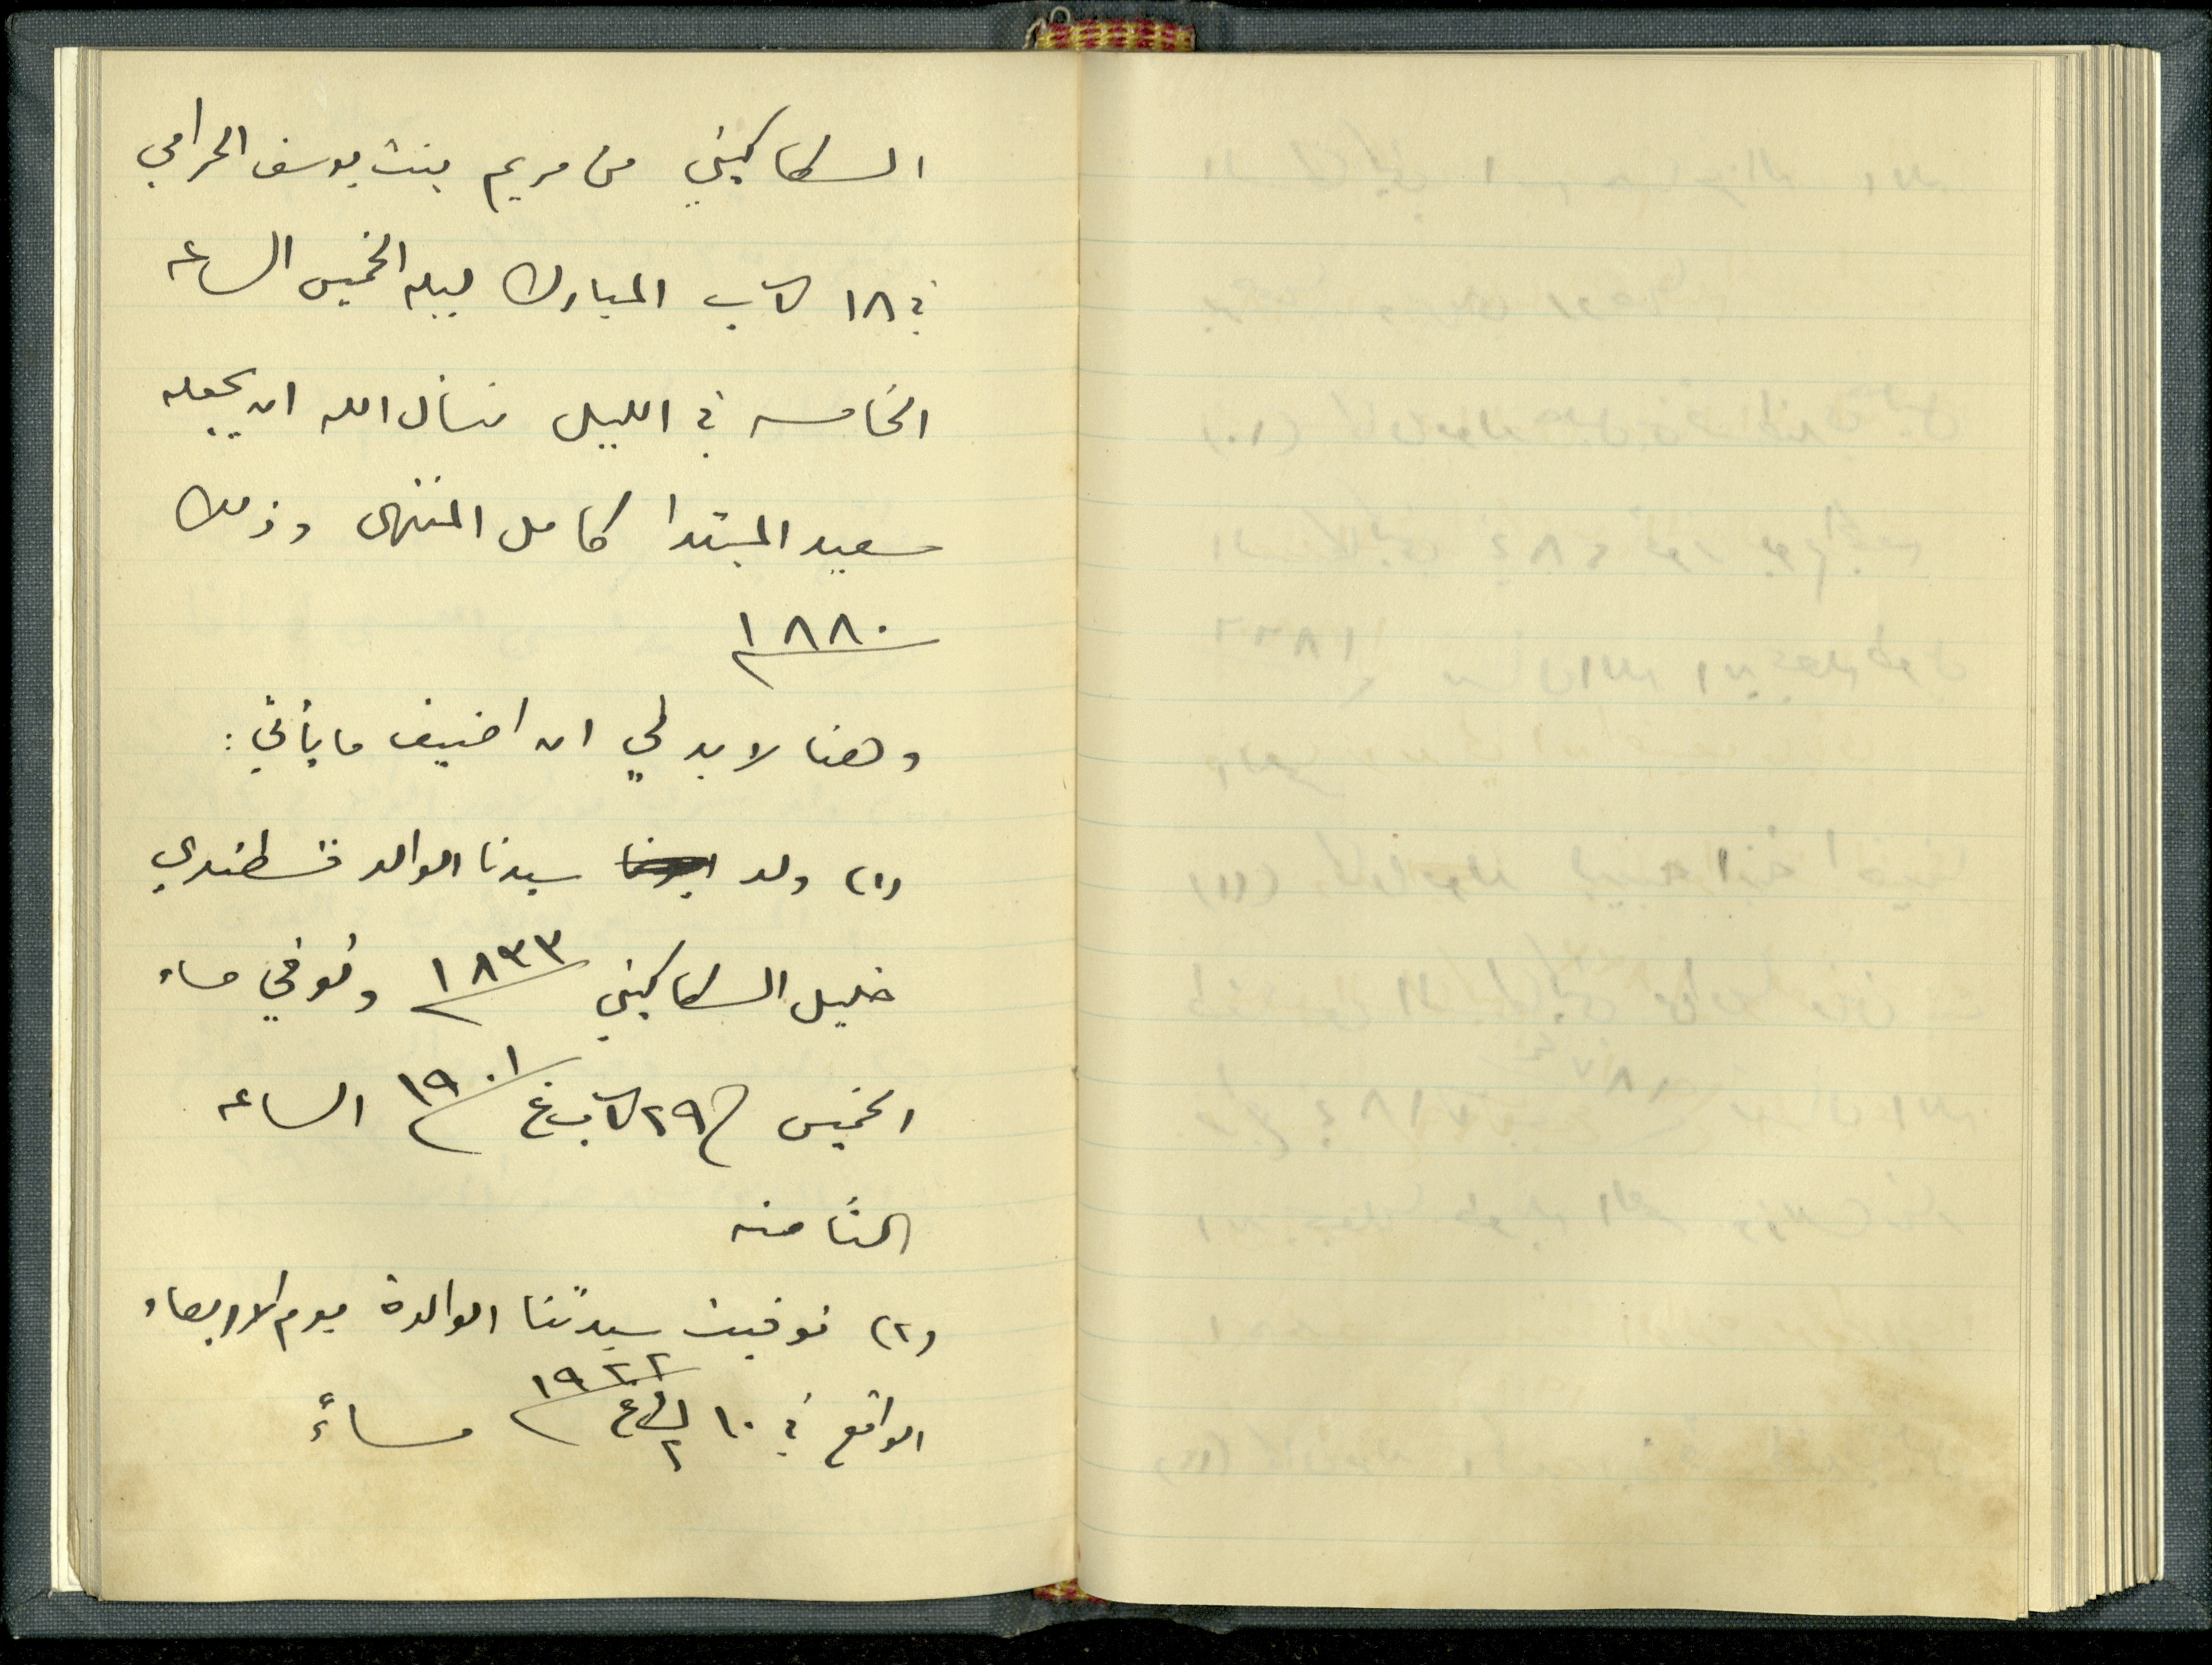 السكاكيني من مريم بنت يوسف الحرامي
في ١٨ ك٢ المبارك ليله الخميس الساعه
الخامسه في الليل نسأل الله ان يجعله
سعيد المبتدا كامل المنتهى وذلك
١٨٨٠
وهنا لا بد لي ان اضيف ما يأتي:
(١) ولد سيدنا الوالد قسطندي
خليل السكاكيني ١٨٣٣ وتوفي مساء
الخميس ٢٩ غ ١٩٠١ الساعه
الثامنه
(٢) توفيت سيدتنا الوالدة يوم الاربعاء
الواقع في ١٠ ١٩٢٢ مساءً